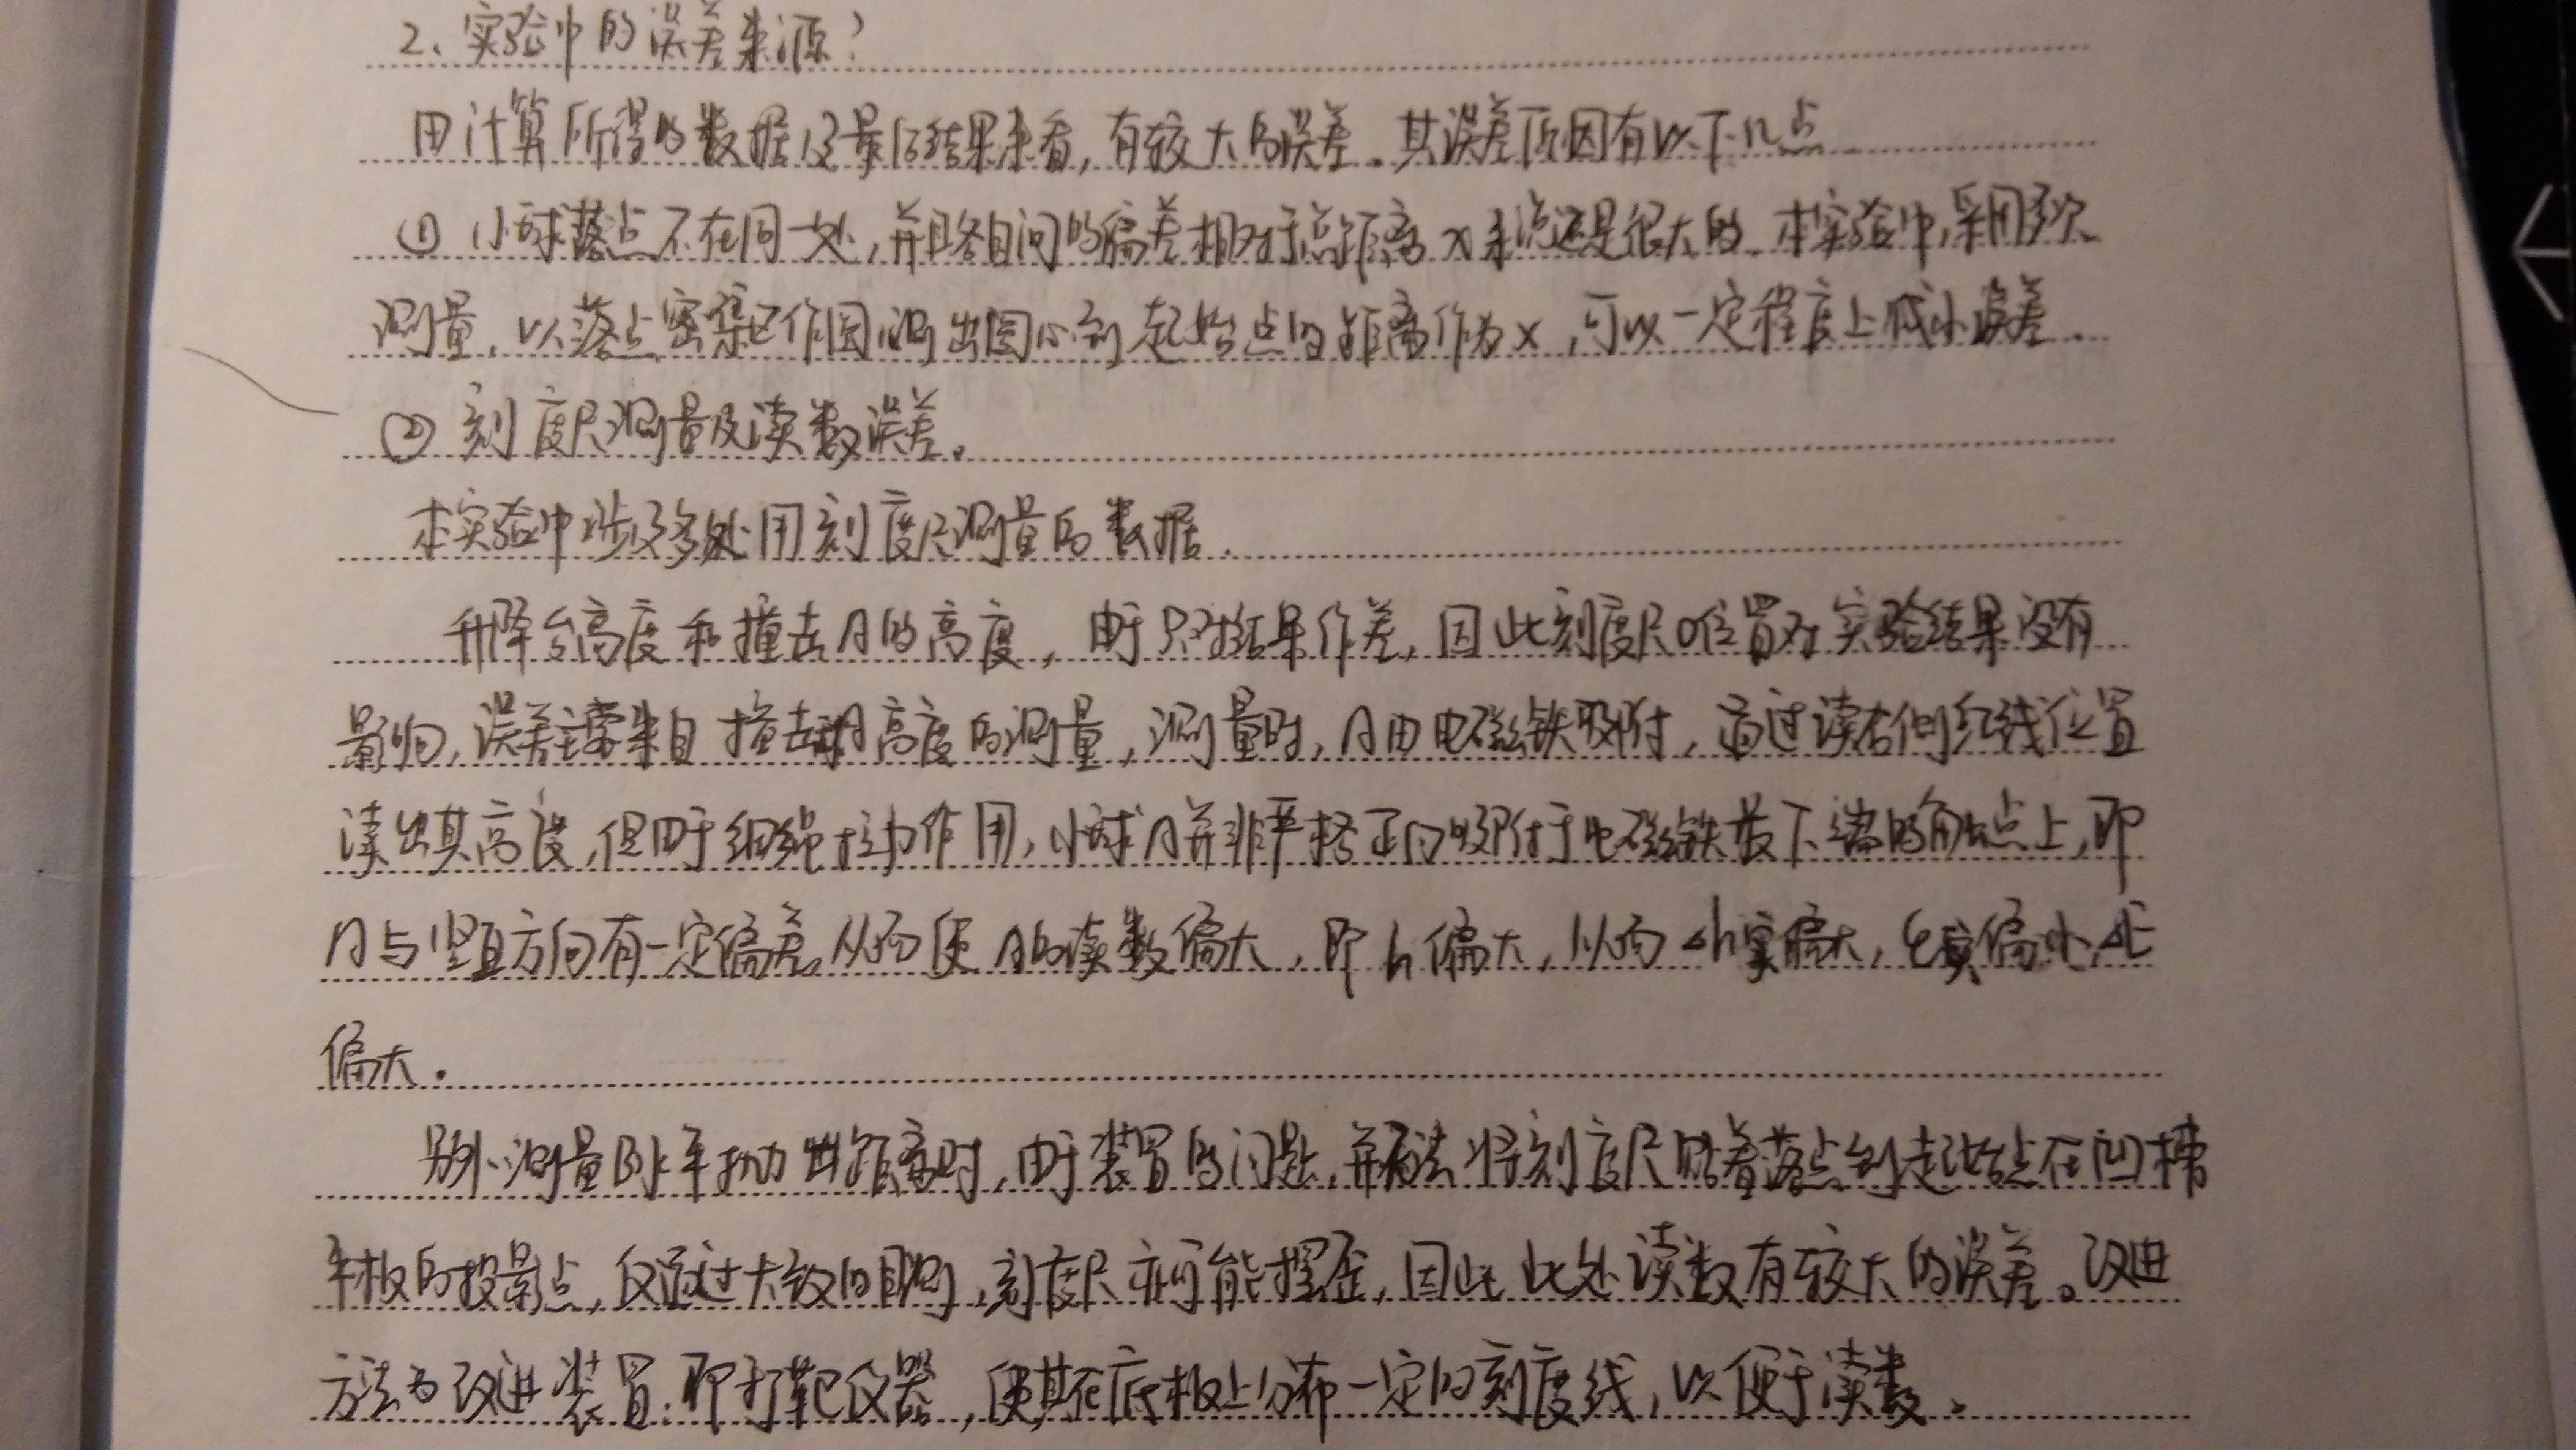 2、实验中的误差来源？
由计算所得的数据及最后结果来看，有较大的误差。其误差原因有以下几点
① 小球落点不在同一处，并且各自间的偏差相对于总距离x来说还是很大的。本实验中，采用多次
测量，以落点密集区作圆，测出圆心到起始点的距离作为x，可以一定程度上减小误差。
② 刻度尺测量及读数误差。
本实验中涉及多处用刻度尺测量的数据．
升降台高度和撞击A的高度，由于只对结果作差，因此刻度尺0位置对实验结果没有
影响，误差主要来自撞击球A高度的测量，测量时，A由电磁铁吸附，通过读右侧红线位置
读出其高度，但由于细绳拉力作用，小球A并非严格正向吸附于电磁铁最下端的触点上，即
A与竖直方向有一定偏差，从而使A的读数偏大，即h偏大，从而Δh实偏大，e实偏小，ΔE
偏大．
另外，测量B水平抛出距离时，由于装置的问题，并无法将刻度尺贴着落点到起始点在凹槽
平板的投影点，仅通过大致的目测，刻度尺亦可能摆歪，因此此处读数有较大的误差。改进
方法为改进装置．即打靶仪器，使其在底板上分布一定的刻度线，以便于读数．